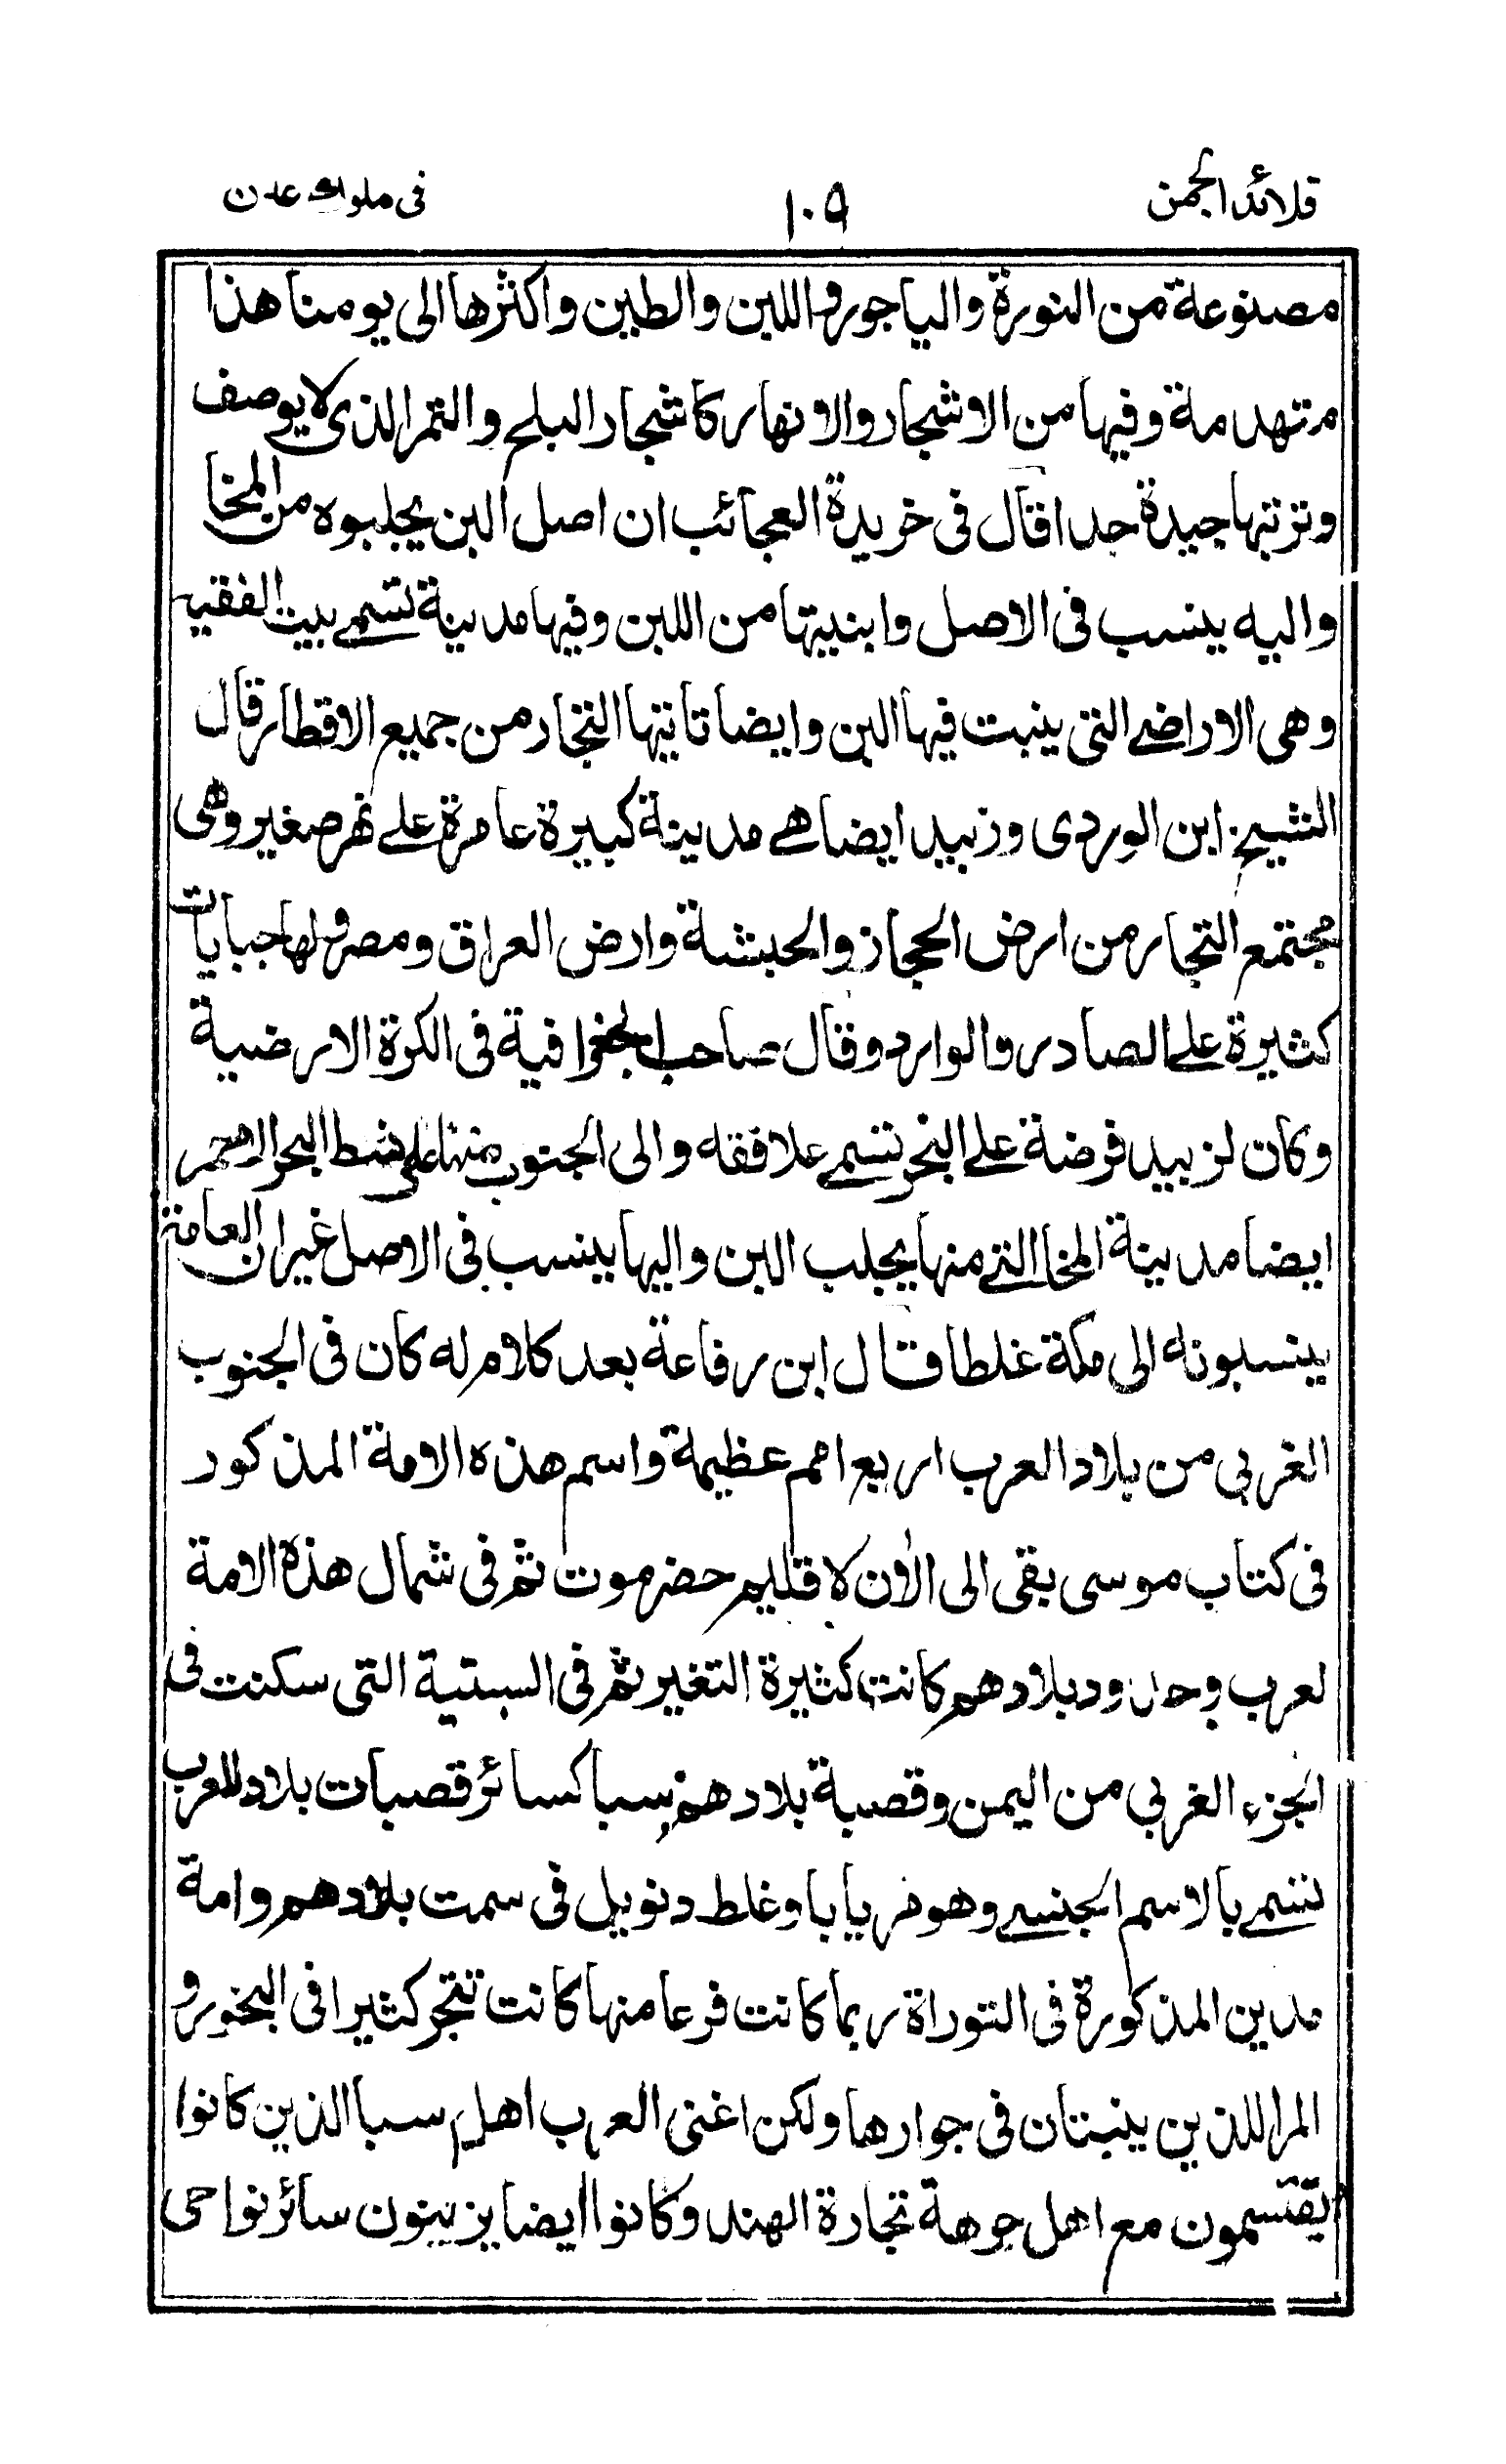 قلائد الجمن ١٠٩ فى ملوك عدن
مصنوعة من النورة والياجور واللبن والطين واكثرها الى يومنا هذا
متهدمة وفيها من الاشجار والانهار كاشجار البلح والتمر الذى لا يوصف
وتربتها جيدة جدا قال فى خريدة العجائب ان اصل البن يجلبوه من المخا
واليه ينسب فى الاصل وابنيتها من اللبن وفيها مدينة تسمى بيت الفقيه
وهى الاراضى التى ينبت فيها البن وايضا تاتيها التجار من جميع الاقطار قال
الشيخ ابن الوردى وزبيد ايضا هى مدينة كبيرة عامرة على نهر صغير وهى
مجتمع التجار من ارض الحجاز والحبشة وارض العراق ومصر ولها جبايات
كثيرة على الصادر والوارد وقال صاحب الجغرافية فى الكرة الارضية
وكان لزبيد فرضة على البحر تسمى علافقه والى الجنوب منها على شط البحر الاحمر
ايضا مدينة المخا التى منها يجلب البن واليها ينسب فى الاصل غير ان العامة
ينسبونه الى مكة غلطا قال ابن رفاعة بعد كلام له كان فى الجنوب
الغربي من بلاد العرب اربع امم عظيمة واسم هذه الامة المذكور
فى كتاب موسى بقى الى الأن لاقليم حضرموت ثم فى شمال هذه الامة
لعرب وحدود بلادهم كانت كثيرة التغير ثم فى السبتية التى سكنت فى
الجزء الغربي من اليمن وقصبة بلادهم سبا كسائر قصبات بلاد للعرب
تسمى بالاسم الجنسى وهو مريابا وغلط دنويل فى سمت بلادهم وامة
مدين المذكورة فى التوراة ربما كانت فرعا منها كانت تتجر كثيرا فى البخور و
المر اللذين ينبتان فى جوارها ولكن اغنى العرب اهل سبا الذين كانوا
يقتسمون مع اهل جرهة تجارة الهند وكانوا ايضا يزينون سائر نواحى